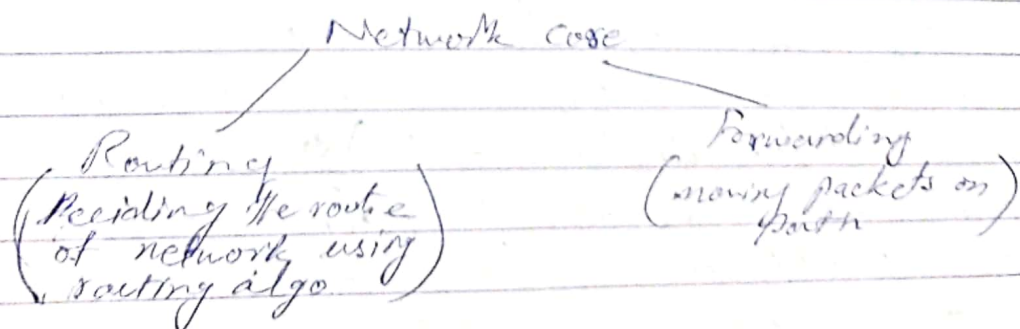 Network core
Routing
(Deciding the route
of network using
routing algo)
Forwarding
(moving packets on
path)